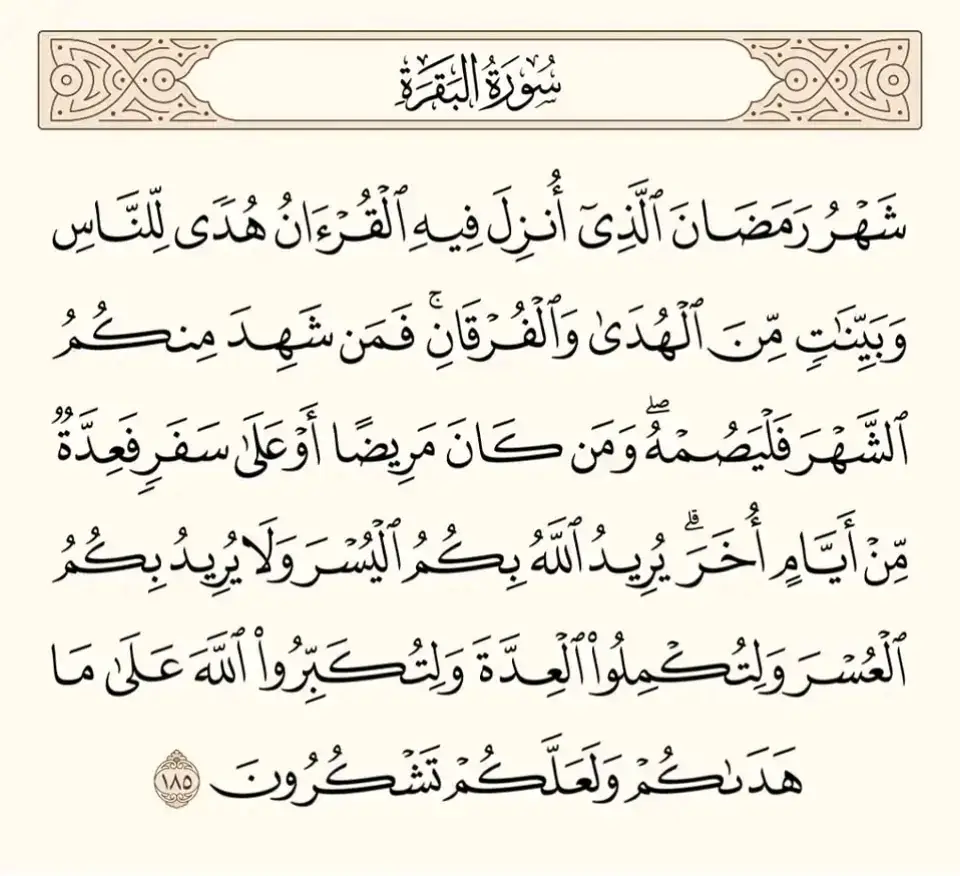 سُورَةُ البَقَرَةِ
شَهۡرُ رَمَضَانَ ٱلَّذِيٓ أُنزِلَ فِيهِ ٱلۡقُرۡءَانُ هُدٗى لِّلنَّاسِ
وَبَيِّنَٰتٖ مِّنَ ٱلۡهُدَىٰ وَٱلۡفُرۡقَانِۚ فَمَن شَهِدَ مِنكُمُ
ٱلشَّهۡرَ فَلۡيَصُمۡهُۖ وَمَن كَانَ مَرِيضًا أَوۡ عَلَىٰ سَفَرٖ فَعِدَّةٞ
مِّنۡ أَيَّامٍ أُخَرَۗ يُرِيدُ ٱللَّهُ بِكُمُ ٱلۡيُسۡرَ وَلَا يُرِيدُ بِكُمُ
ٱلۡعُسۡرَ وَلِتُكۡمِلُواْ ٱلۡعِدَّةَ وَلِتُكَبِّرُواْ ٱللَّهَ عَلَىٰ مَا
هَدَىٰكُمۡ وَلَعَلَّكُمۡ تَشۡكُرُونَ ١٨٥